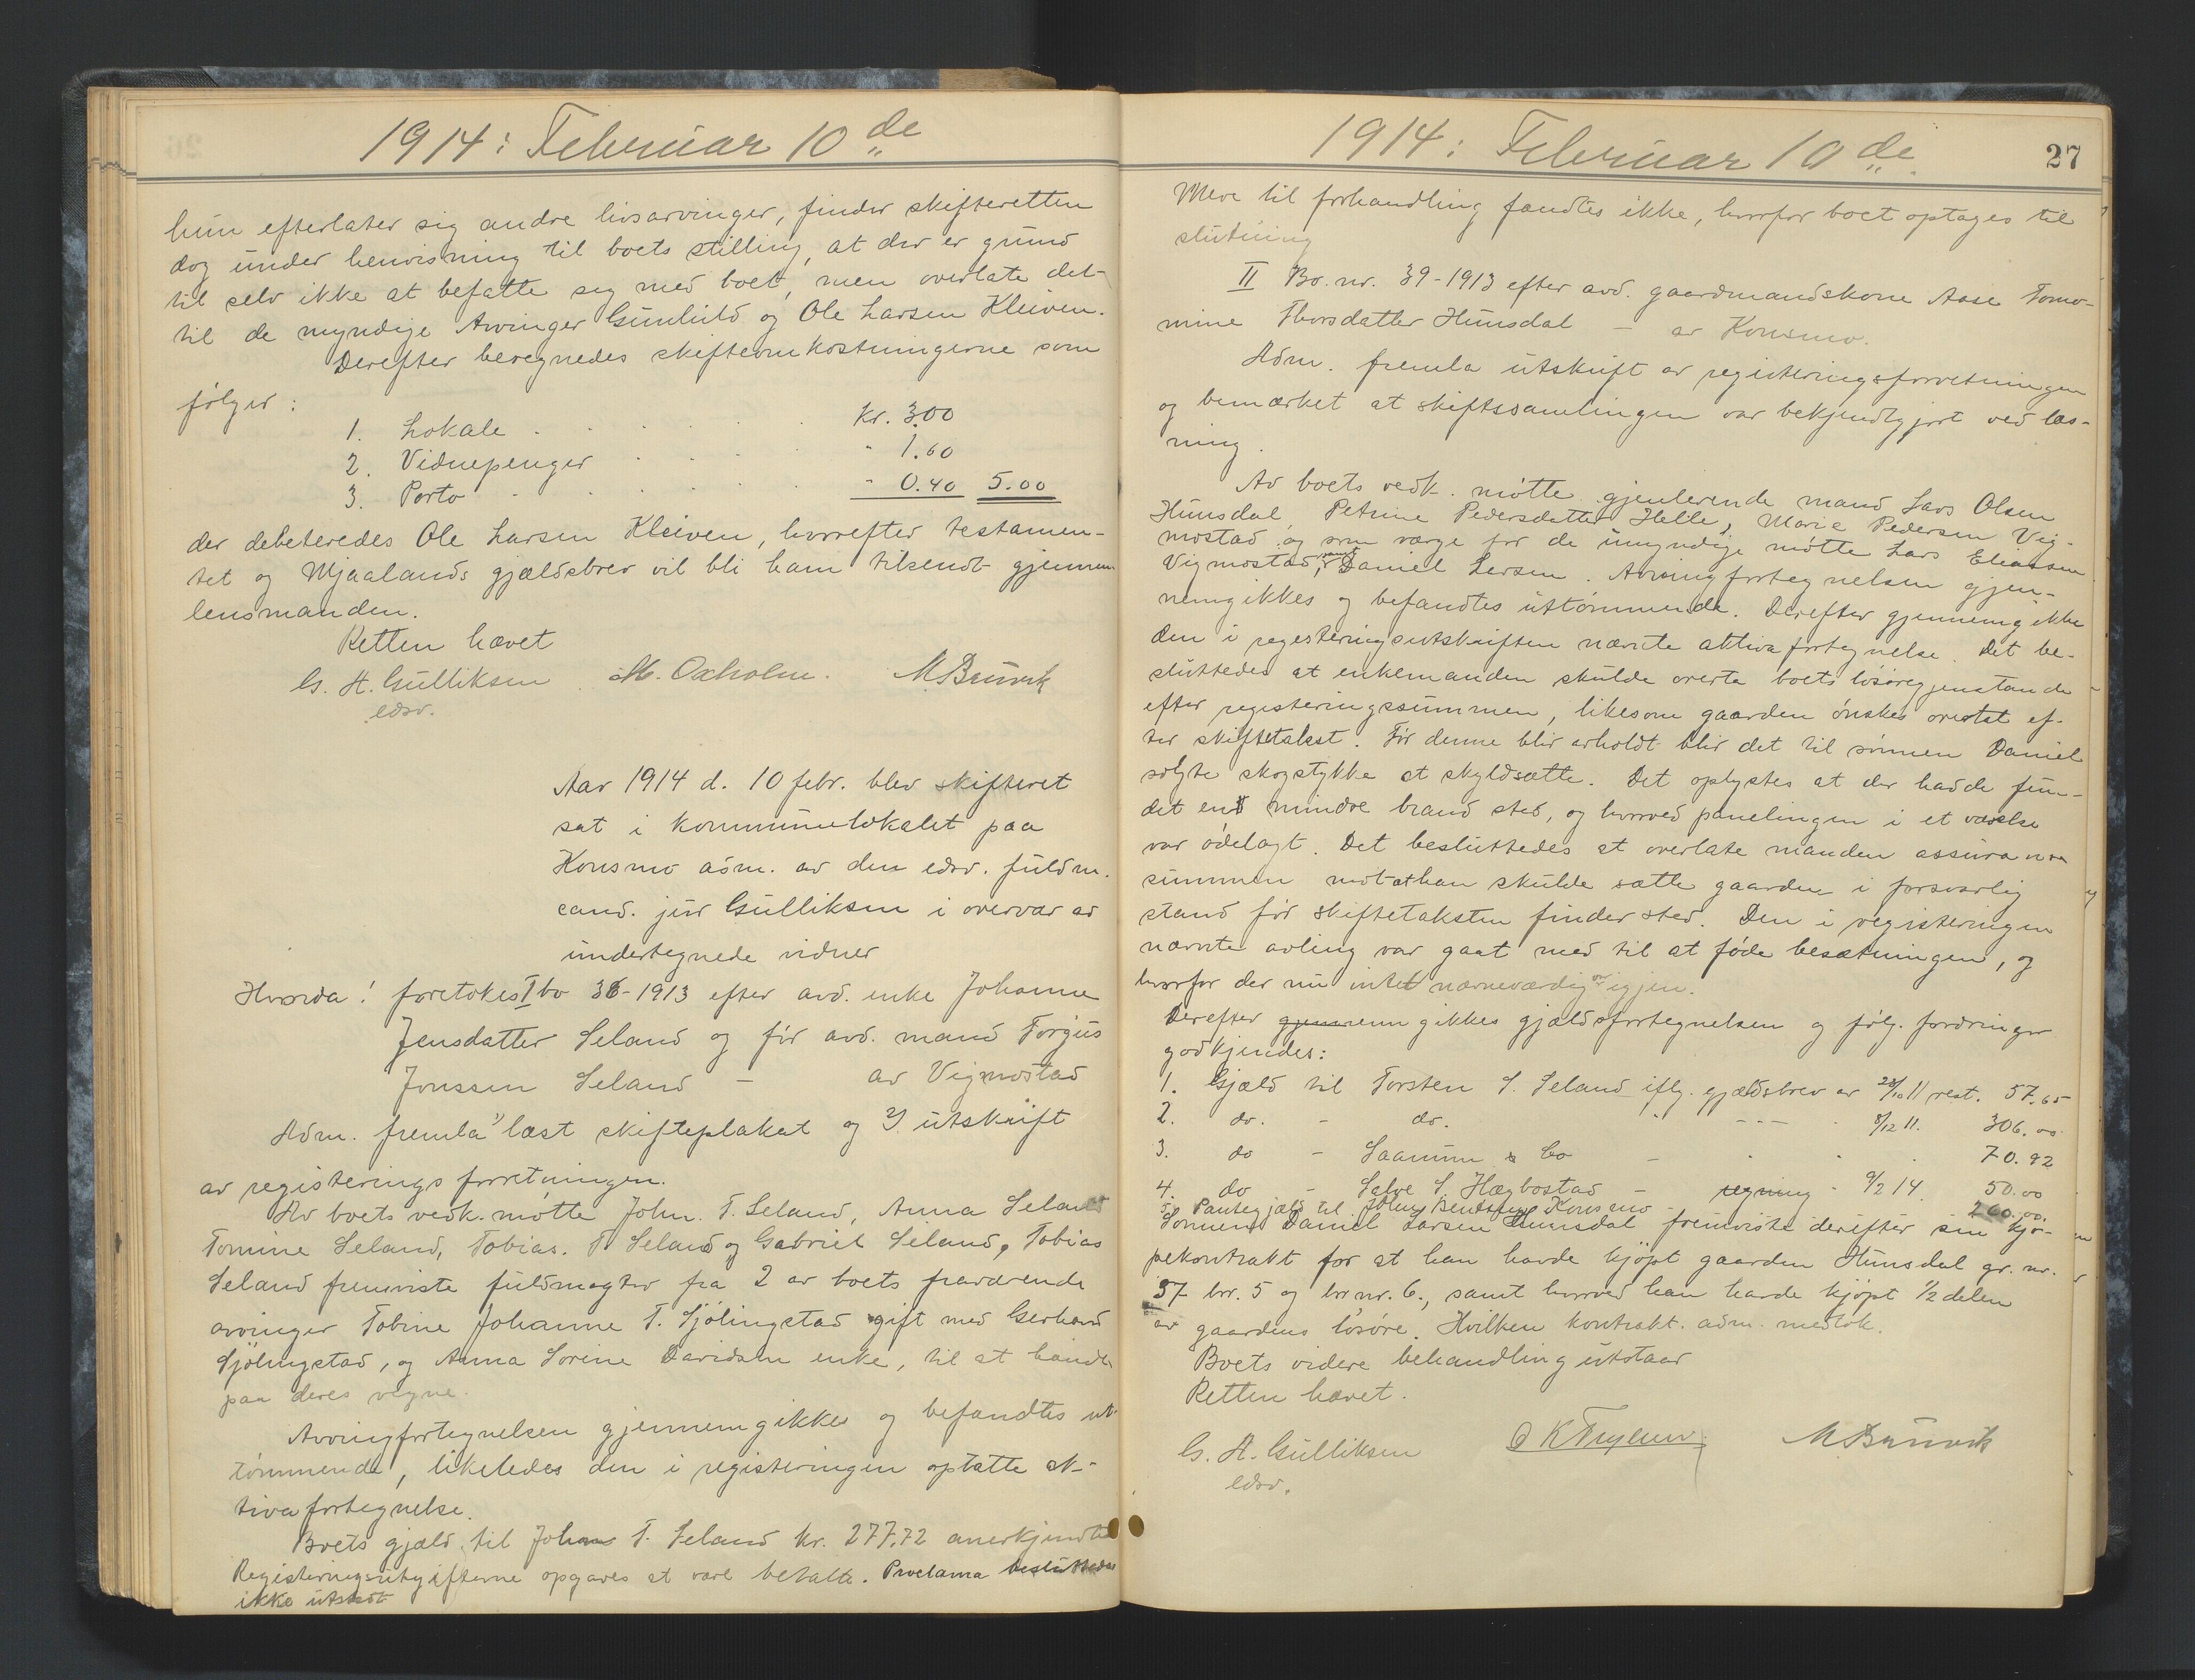 1914: Februar 10de
hun efterlater sig andre livsarvinger, finder skifteretten
dog under henvisning til boets stilling, at der er grund
til selv ikke at befatte seg med boet, men overlate det
til de myndige Arvinger Gunhild og Ole Larsen Kleiven.
Derefter beregnedes skifteomkostningerne som
følger:
1. Lokale . . . . . Kr. 3.00
2. Vidnepenger . . . . " 1.60
3. Porto . . . . . " 0.40 5.00
der debeteredes Ole Larsen Kleiven, hvorefter testamen-
tet og Mjaalands gjældsbrev vil bli ham tilsendt gjennem
lensmanden.
Retten hævet
G. H. Gulliksen M. Oxholm. M Brunvik
edsv.
Aar 1914 d. 10 febr. blev skifteret
sat i kommunelokalet paa
Konsmo adm. av den edsv. fuldm.
cand. jur Gulliksen i overvær av
undertegnede vidner
Hvorda! foretokes I bo 36-1913 efter avd. enke Johanne
Jensdatter Seland og før avd. mand Torgius
Jonssen Seland – av Vigmostad
Adm. fremla 1/ læst skifteplakat og 2/ utskrift
av registerings forretningen.
Av boets vedk. møtte John. T. Seland, Anna Seland
Tomine Seland, Tobias. T. Seland og Gabriel Seland, Tobias
Seland fremviste fuldmagter fra 2 av boets fraværende
arvinger Tobine Johanne T. Sjölingstad gift med Gerhard
Sjölingstad, og Anna Sorine Davidsen enke, til at handle
paa deres vegne.
Arvingfortegnelsen gjennemgikkes og befandtes ut-
tømmende, likeledes den i registeringen optatte ak-
tiva fortegnelse.
Boets gjæld til Johan T. Seland kr. 277.72 anerkjendtes
Registeringsutgifterne opgaves at være betalte. Proclama besluttedes
ikke utstedt
1914: Februar 10de. 27
Mere til forhandling fandtes ikke, hvorfor boet optages til
slutning
II Bo. nr. 39-1913 efter avd. gaardmandskone Aase Tomo-
mine Thorsdatter Hunsdal – av Konsmo.
Adm. fremla utskrift av registeringsforretningen
og bemærket at skiftssamlingen var bekjendtgjort ved læs-
ning.
Av boets vedk. møtte gjenlevende mand Lars Olsen
Hunsdal, Petrine Pedersdatter Helle, Marie Pedersen Vig-
mostad og som værge for de umyndige møtte Lars Eliassen
Vigmostad, samt Daniel Larsen. Arvingfortegnelsen gjen-
nemgikkes og befandtes uttømmende. Derefter gjennemgikke
den i registeringsutskriften nævnte aktiva fortegnelse. Det be-
sluttedes at enkemanden skulde overta boets løsøregjenstande
efter registeringssummen, likesom gaarden ønskes overtat ef-
ter skiftetakst. Før denne blir avholdt blir det til sønnen Daniel
solgte skogstykke at skyldsætte. Det oplystes at der hadde fun-
det en mindre brand sted, og hvorved panelingen i et værelse
var ødelagt. Det besluttedes at overlate manden assuranse
summen mot at han skulde sætte gaarden i forsvarlig
stand før skiftetaksten finder sted. Den i registeringen
nævnte avling var gaat med til at føde besætningen, og
hvorfor der nu intet nævneværdig var igjen.
Derefter gjennemgikkes gjældsfortegnelsen og følg. fordringer
godkjendes:
1. Gjæld til Torsten S. Seland iflg. gjældsbrev av 28/10 11 rest. 57.65
2. do. - do. " --- 8/12 11. 306.00
3. do - Saanum & Co - 70.92
4. do - Salve S. Hægbostad - regning - 9/2 14. 50.00
5. Pantegjæld til Johny Bentsen Konsmo 260.00.
Sønnen Daniel Larsen Hunsdal fremviste derefter sin kjø-
pekontrakt for at han havde kjøpt gaarden Hunsdal gr. nr.
37 br. 5 og br nr. 6., samt hvorved han havde kjøpt 1/2 delen
av gaardens løsøre. Hvilken kontrakt. adm. medtok.
Boets videre behandling utstaar
Retten hævet.
G. H. Gulliksen M Brunvik
edsv.